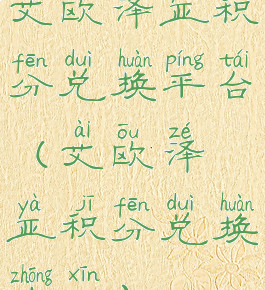 艾欧泽亚积
fēn duì huàn píng tái
分兑换平台
ài ōu zé
(艾欧泽
yà jī fēn duì huàn
亚积分兑换
zhōng xīn